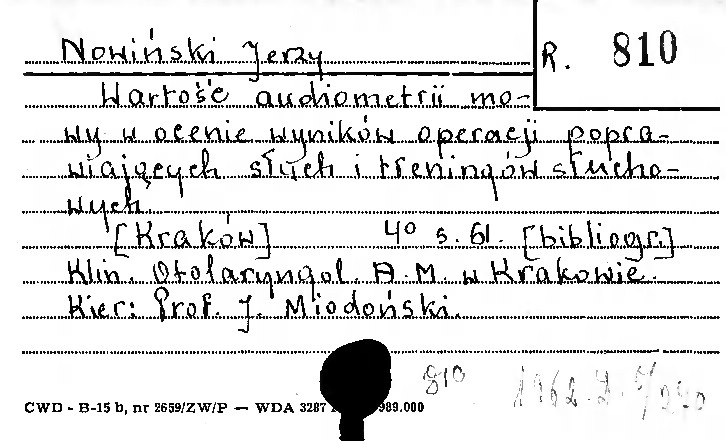 Nowiński Jerzy
R. 810
Wartość audiometrii mo-
wy w ocenie wyników operacji popra-
wiających słuch i treningów słucho-
wych.
[Kraków] 4° s. 61. [bibliogr.]
Klin. Otolaryngol. A.M. w Krakowie.
Kier: Prof. J. Miodoński.
810
CWD - B-15 b, nr 2659/ZW/P — WDA 3287 989.000